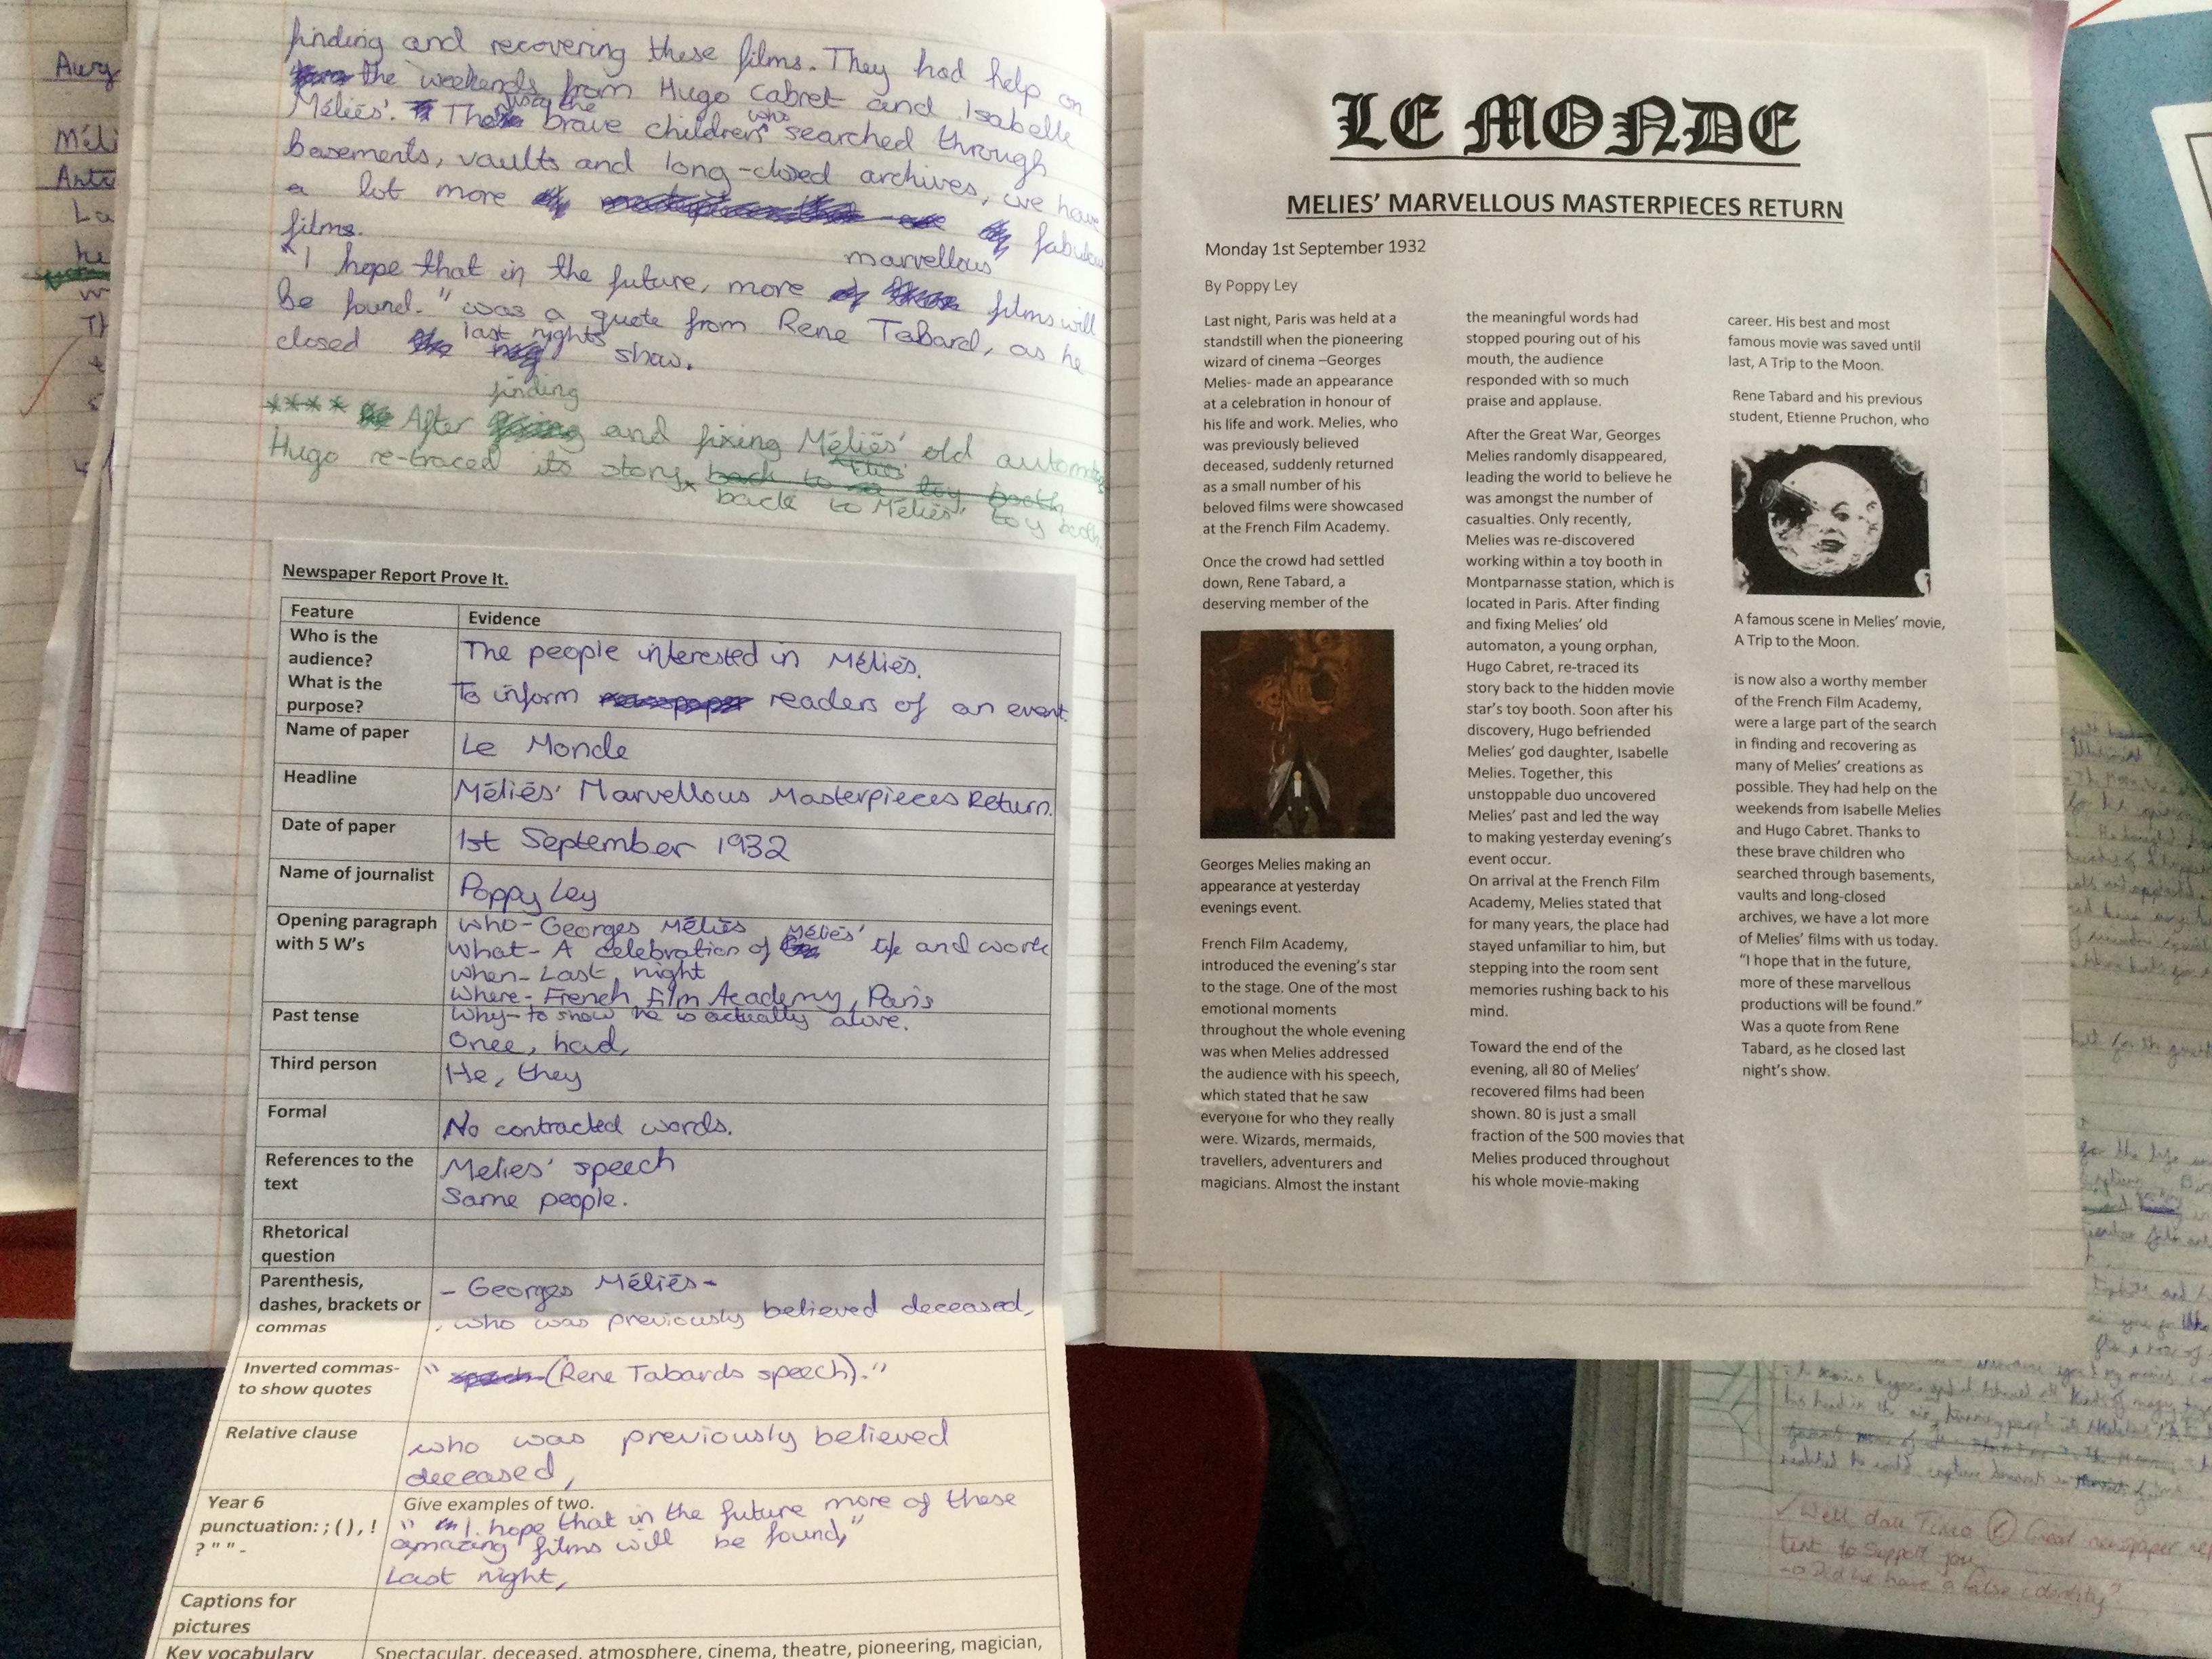 finding and recovering these films. They had help on
the weekends from Hugo Cabret and Isabelle
Méliès'. The brave children who searched through
basements, vaults and long-closed archives, we have
a lot more
films.
"I hope that in the future, more marvellous films will
be found." was a quote from Rene Tabard, as he
closed last nights show.
**** After finding and fixing Méliès' old
Hugo re-traced its story
back to Méliès' toy booth.
Newspaper Report Prove It.
Feature Evidence
Who is the audience? The people interested in Méliès.
What is the purpose? To inform readers of an event.
Name of paper Le Monde
Headline Méliès' Marvellous Masterpieces Return.
Date of paper 1st September 1932
Name of journalist Poppy Ley
Opening paragraph with 5 W's
Who- Georges Méliès
What- A celebration of Méliès' life and work
When- Last night
Where- French Film Academy, Paris
Why- to show he is actually alive.
Past tense Once, had,
Third person He, they
Formal No contracted words.
References to the text
Melies' speech
Same people.
Rhetorical question
Parenthesis, dashes, brackets or commas
- Georges Méliès-
, who was previously believed deceased,
Inverted commas- to show quotes "(Rene Tabards speech)."
Relative clause
who was previously believed
deceased,
Year 6 punctuation: ; ( ) , ! ? " " -
Give examples of two.
" I hope that in the future more of these
amazing films will be found,"
Last night,
Captions for pictures
Key vocabulary Spectacular, deceased, atmosphere, cinema, theatre, pioneering, magician,
LE MONDE
MELIES' MARVELLOUS MASTERPIECES RETURN
Monday 1st September 1932
By Poppy Ley
Last night, Paris was held at a
standstill when the pioneering
wizard of cinema –Georges
Melies- made an appearance
at a celebration in honour of
his life and work. Melies, who
was previously believed
deceased, suddenly returned
as a small number of his
beloved films were showcased
at the French Film Academy.
Once the crowd had settled
down, Rene Tabard, a
deserving member of the
Georges Melies making an
appearance at yesterday
evenings event.
French Film Academy,
introduced the evening's star
to the stage. One of the most
emotional moments
throughout the whole evening
was when Melies addressed
the audience with his speech,
which stated that he saw
everyone for who they really
were. Wizards, mermaids,
travellers, adventurers and
magicians. Almost the instant
the meaningful words had
stopped pouring out of his
mouth, the audience
responded with so much
praise and applause.
After the Great War, Georges
Melies randomly disappeared,
leading the world to believe he
was amongst the number of
casualties. Only recently,
Melies was re-discovered
working within a toy booth in
Montparnasse station, which is
located in Paris. After finding
and fixing Melies' old
automaton, a young orphan,
Hugo Cabret, re-traced its
story back to the hidden movie
star's toy booth. Soon after his
discovery, Hugo befriended
Melies' god daughter, Isabelle
Melies. Together, this
unstoppable duo uncovered
Melies' past and led the way
to making yesterday evening's
event occur.
On arrival at the French Film
Academy, Melies stated that
for many years, the place had
stayed unfamiliar to him, but
stepping into the room sent
memories rushing back to his
mind.
Toward the end of the
evening, all 80 of Melies'
recovered films had been
shown. 80 is just a small
fraction of the 500 movies that
Melies produced throughout
his whole movie-making
career. His best and most
famous movie was saved until
last, A Trip to the Moon.
Rene Tabard and his previous
student, Etienne Pruchon, who
A famous scene in Melies' movie,
A Trip to the Moon.
is now also a worthy member
of the French Film Academy,
were a large part of the search
in finding and recovering as
many of Melies' creations as
possible. They had help on the
weekends from Isabelle Melies
and Hugo Cabret. Thanks to
these brave children who
searched through basements,
vaults and long-closed
archives, we have a lot more
of Melies' films with us today.
"I hope that in the future,
more of these marvellous
productions will be found."
Was a quote from Rene
Tabard, as he closed last
night's show.